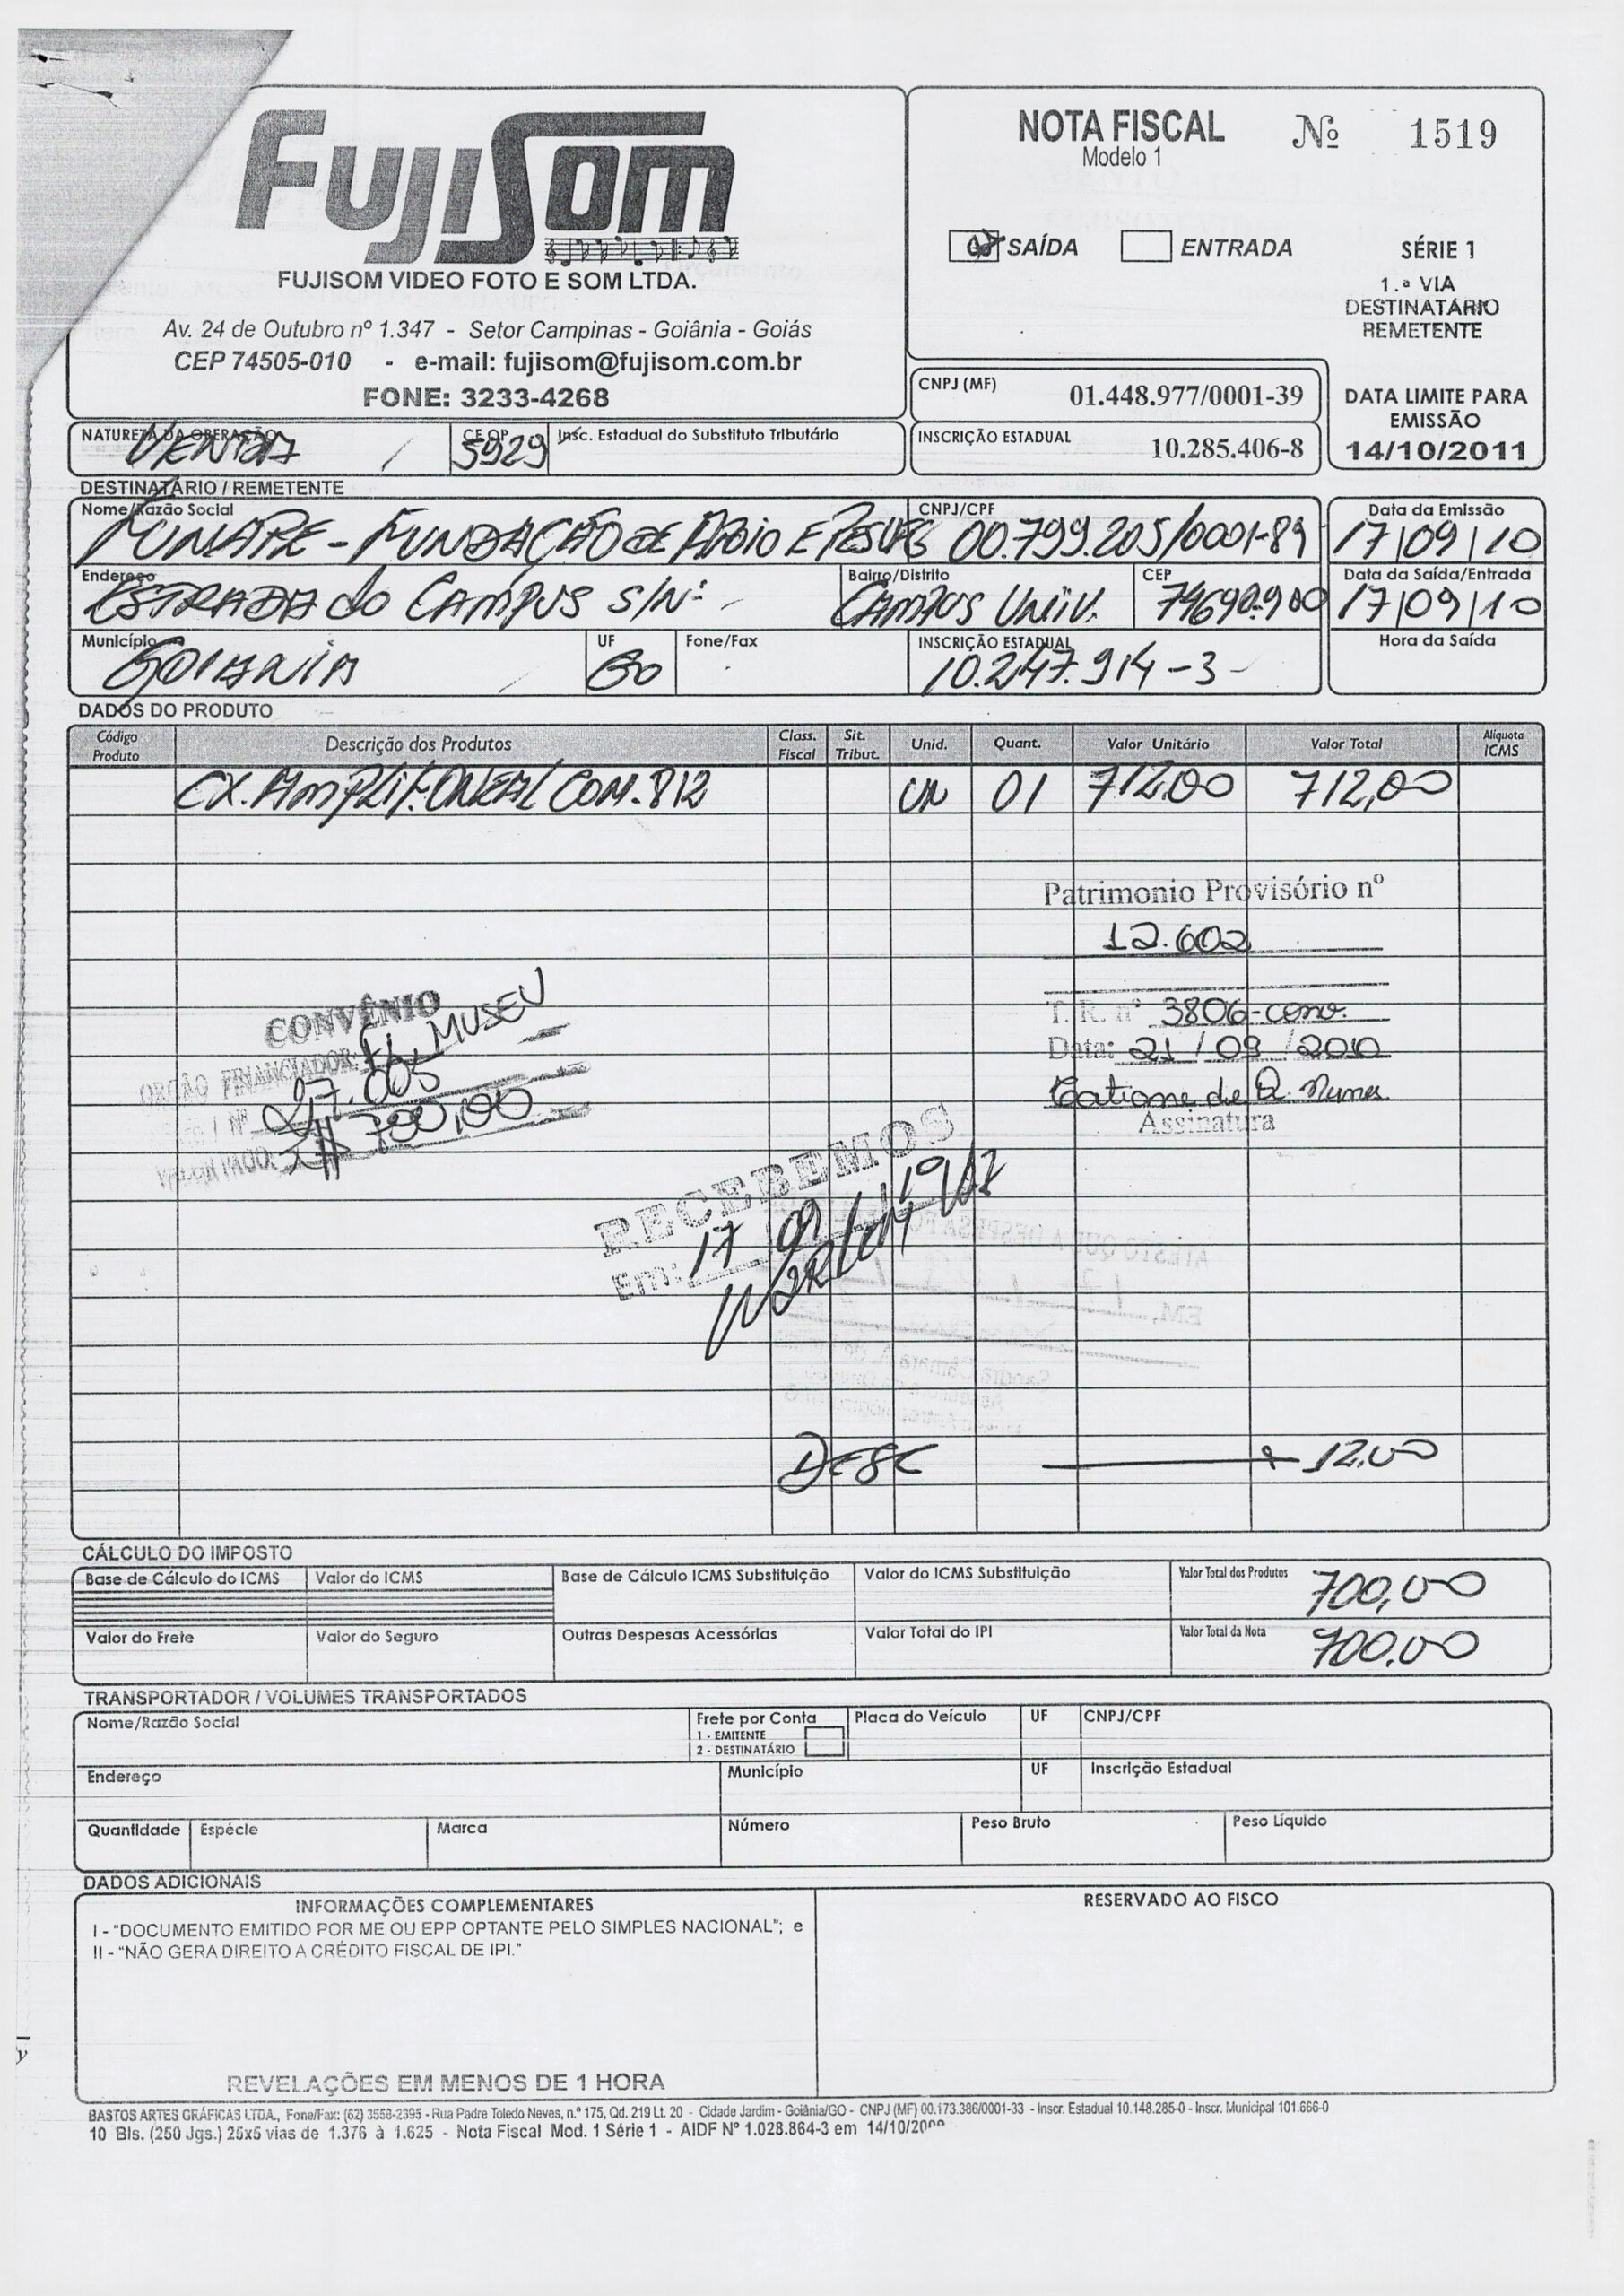 FUJISOM
NOTA FISCAL Nº 1519
Modelo 1
SAÍDA ENTRADA SÉRIE 1
1.ª VIA
DESTINATÁRIO
REMETENTE
FUJISOM VIDEO FOTO E SOM LTDA.
Av. 24 de Outubro nº 1.347 - Setor Campinas - Goiânia - Goiás
CEP 74505-010 - e-mail: fujisom@fujisom.com.br
FONE: 3233-4268
CNPJ (MF) 01.448.977/0001-39
INSCRIÇÃO ESTADUAL 10.285.406-8
DATA LIMITE PARA
EMISSÃO
14/10/2011
NATUREZA DA OPERAÇÃO CFOP Insc. Estadual do Substituto Tributário
VENDA 5929
DESTINATÁRIO / REMETENTE
Nome/Razão Social CNPJ/CPF Data da Emissão
FUNAPE - FUNDAÇÃO DE APOIO E PESUFG 00.799.205/0001-89 17/09/10
Endereço Bairro/Distrito CEP Data da Saída/Entrada
ESTRADA do CAMPUS S/Nº CAMPUS UNIV. 74690.900 17/09/10
Município UF Fone/Fax INSCRIÇÃO ESTADUAL Hora da Saída
GOIANIA GO 10.247.914-3
DADOS DO PRODUTO
Código Produto Descrição dos Produtos Class. Fiscal Sit. Tribut. Unid. Quant. Valor Unitário Valor Total Alíquota ICMS
CX. AMPLIF. ONEAL COM. 812 UN 01 712,00 712,00
Patrimonio Provisório nº
12.602
T. R. nº 3806-conv.
Data: 21/09/2010
Tatiane de Q. Nunes
Assinatura
CONVÊNIO
ORGÃO FINANCIADOR: MUSEU
Nº 27.005
VALOR PAGO: 700,00
RECEBEMOS
Em: 17 09
ATESTO QUE A DESPESA
EM,
DESC 12,00
CÁLCULO DO IMPOSTO
Base de Cálculo do ICMS Valor do ICMS Base de Cálculo ICMS Substituição Valor do ICMS Substituição Valor Total dos Produtos 700,00
Valor do Frete Valor do Seguro Outras Despesas Acessórias Valor Total do IPI Valor Total da Nota 700,00
TRANSPORTADOR / VOLUMES TRANSPORTADOS
Nome/Razão Social Frete por Conta Placa do Veículo UF CNPJ/CPF
1 - EMITENTE
2 - DESTINATÁRIO
Endereço Município UF Inscrição Estadual
Quantidade Espécie Marca Número Peso Bruto Peso Líquido
DADOS ADICIONAIS
INFORMAÇÕES COMPLEMENTARES RESERVADO AO FISCO
I - "DOCUMENTO EMITIDO POR ME OU EPP OPTANTE PELO SIMPLES NACIONAL"; e
II - "NÃO GERA DIREITO A CRÉDITO FISCAL DE IPI."
REVELAÇÕES EM MENOS DE 1 HORA
BASTOS ARTES GRÁFICAS LTDA., Fone/Fax: (62) 3558-2395 - Rua Padre Toledo Neves, n.º 175, Qd. 219 Lt. 20 - Cidade Jardim - Goiânia/GO - CNPJ (MF) 00.173.386/0001-33 - Inscr. Estadual 10.148.285-0 - Inscr. Municipal 101.666-0
10 Bls. (250 Jgs.) 25x5 vias de 1.376 à 1.625 - Nota Fiscal Mod. 1 Série 1 - AIDF Nº 1.028.864-3 em 14/10/2009